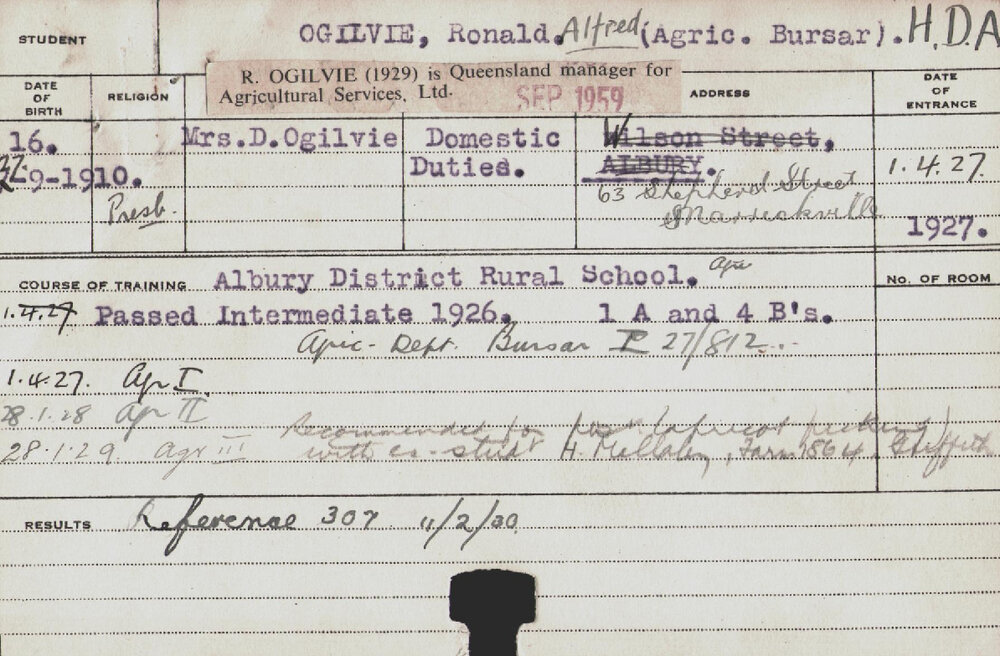 STUDENT OGILVIE, Ronald. Alfred (Agric. Bursar). H.D.A
R. OGILVIE (1929) is Queensland manager for
Agricultural Services, Ltd.
SEP 1959
DATE OF BIRTH RELIGION ADDRESS DATE OF ENTRANCE
16. Mrs.D.Ogilvie Domestic Wilson Street,
-9-1910. Duties. ALBURY. 1.4.27.
Presb. 63 Shepherd Street
Marrickville 1927.
COURSE OF TRAINING Albury District Rural School. No. OF ROOM
1.4.27 Passed Intermediate 1926. 1 A and 4 B's.
Agric. Dept. Bursar 27/812
1.4.27. Agr I.
28.1.28 Agr II
28.1.29. Agr III Recommended for apricot picking
with ex-studt H. Mellaley, Farm 1864, Griffith
RESULTS Reference 307 11/2/30